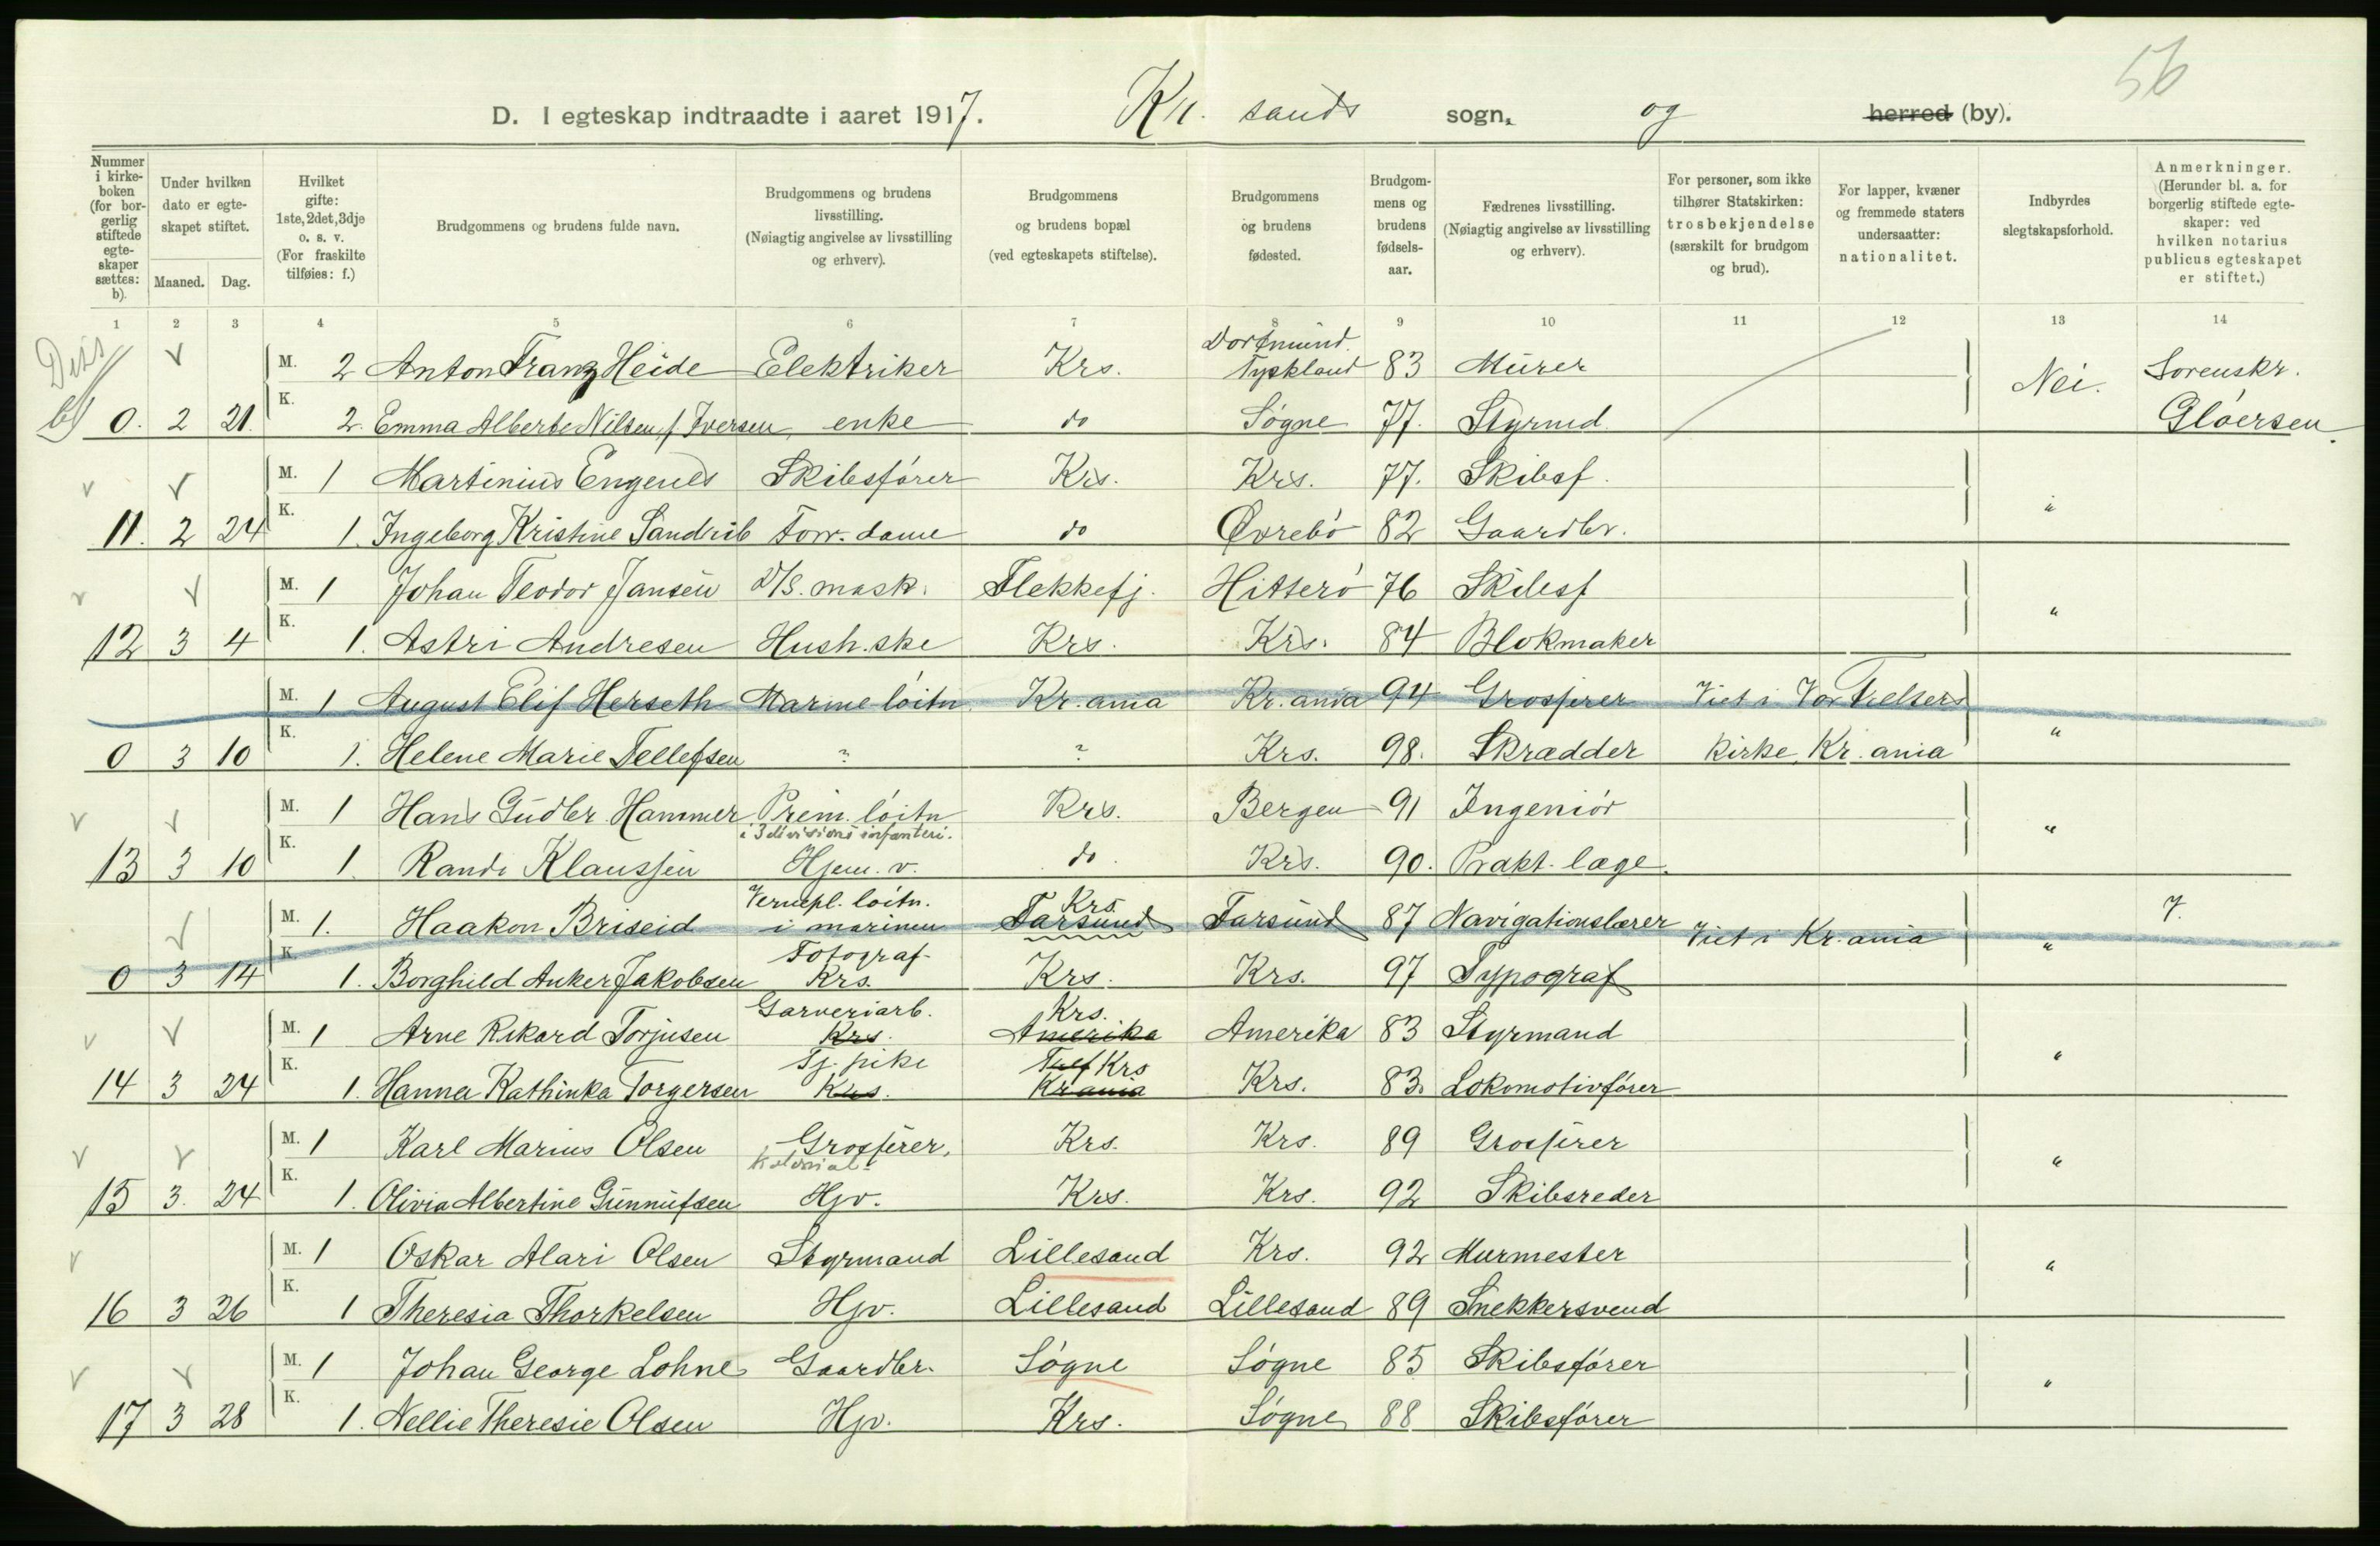 56
D. I egteskap indtraadte i aaret 1917. Kr. sands sogn, og herred (by).
Nummer i kirkeboken (for borgerlig stiftede egteskaper sættes: b).
Under hvilken dato er egteskapet stiftet.
Maaned. Dag.
Hvilket gifte: 1ste, 2det, 3dje o. s. v. (For fraskilte tilføies: f.)
Brudgommens og brudens fulde navn.
Brudgommens og brudens livsstilling. (Nøiagtig angivelse av livsstilling og erhverv).
Brudgommens og brudens bopæl (ved egteskapets stiftelse).
Brudgommens og brudens fødested.
Brudgommens og brudens fødselsaar.
Fædrenes livsstilling. (Nøiagtig angivelse av livsstilling og erhverv).
For personer, som ikke tilhører Statskirken: trosbekjendelse (særskilt for brudgom og brud).
For lapper, kvæner og fremmede staters undersaatter: nationalitet.
Indbyrdes slegtskapsforhold.
Anmerkninger. (Herunder bl. a. for borgerlig stiftede egteskaper: ved hvilken notarius publicus egteskapet er stiftet.)
1 2 3 4 5 6 7 8 9 10 11 12 13 14
Diss
M. 2 Anton Franz Heide Elektriker Krs. Dortmund. Tyskland 83 Murer Nei. Sorenskr.
b) 0. 2 21. K. 2. Emma Alberte Nilsen f. Iversen enke do Søgne 77. Styrmd. Gløersen.
M. 1 Martinius Engenes Skibsfører Krs. Krs. 77. Skibsf.
11. 2 24 K. 1. Ingeborg Kristine Sandrib Forr. dame do Øvrebø 82 Gaardbr. "
M. 1 Johan Teodor Jansen D/S. mask. Flekkefj. Hitterø 76 Skibsf
12 3 4 K. 1. Astri Andresen Hush.ske Krs. Krs. 84 Blokmaker "
M. 1 August Elif Herseth Marine løitn. Kr.ania Kr.ania 94 Grosserer Viet i Vor Frelsers
0 3 10 K. 1. Helene Marie Tellefsen ? ? Krs. 98. Skrædder kirke, Kr.ania "
M. 1 Hans Gudbr. Hammer Prem. løitn i 3 divisions infanteri. Krs. Bergen 91 Ingeniør
13 3 10 K. 1. Randi Klaussen Hjem. v. do. Krs. 90. Prakt. læge. "
M. 1. Haakon Briseid Vernepl. løitn. i marinen Krs. Farsund Farsund 87 Navigationslærer Viet i Kr.ania 7.
0 3 14 K. 1. Borghild Anker Jakobsen Fotograf Krs. Krs. Krs. 97 Typograf "
M. 1 Arne Rikard Torjusen Garveriarb. Krs. Krs. Amerika Amerika 83 Styrmand
14 3 24 K. 1. Hanna Kathinka Torgersen Tj. pike Krs. Krs Kr.ania Krs. 83. Lokomotivfører "
M. 1 Karl Marius Olsen Grosserer, Kolonial Krs. Krs. 89 Grosserer
15 3. 24 K. 1. Olivia Albertine Gunnufsen Hjv. Krs. Krs. 92 Skibsreder "
M. 1 Oskar Alari Olsen Styrmand Lillesand Krs. 92 Murmester
16 3 26 K. 1 Theresia Thorkelsen Hjv. Lillesand Lillesand 89 Snekkersvend "
M. 1 Johan George Lohne Gaardbr. Søgne Søgne 85 Skibsfører
17 3 28 K. 1. Nellie Theresie Olsen Hjv. Krs. Søgne 88 Skibsfører "